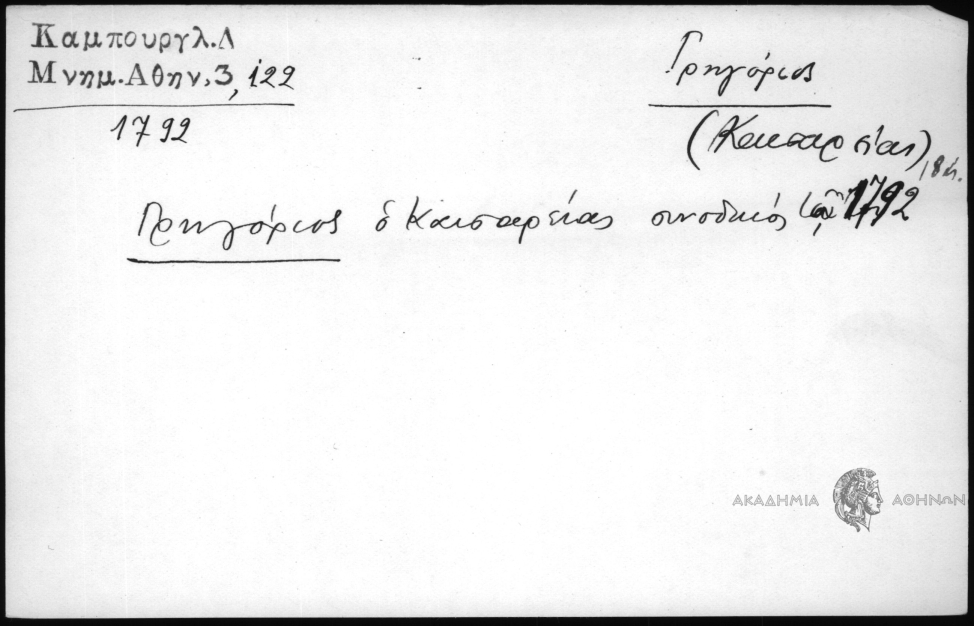 Καμπουργλ.Δ
Μνημ.Αθην.3, 122
1792
Γρηγόριος
(Καισαρείας)
18 αι.
Γρηγόριος ὁ Καισαρείας συνοδικός 1792
ΑΚΑΔΗΜΙΑ ΑΘΗΝΩΝ